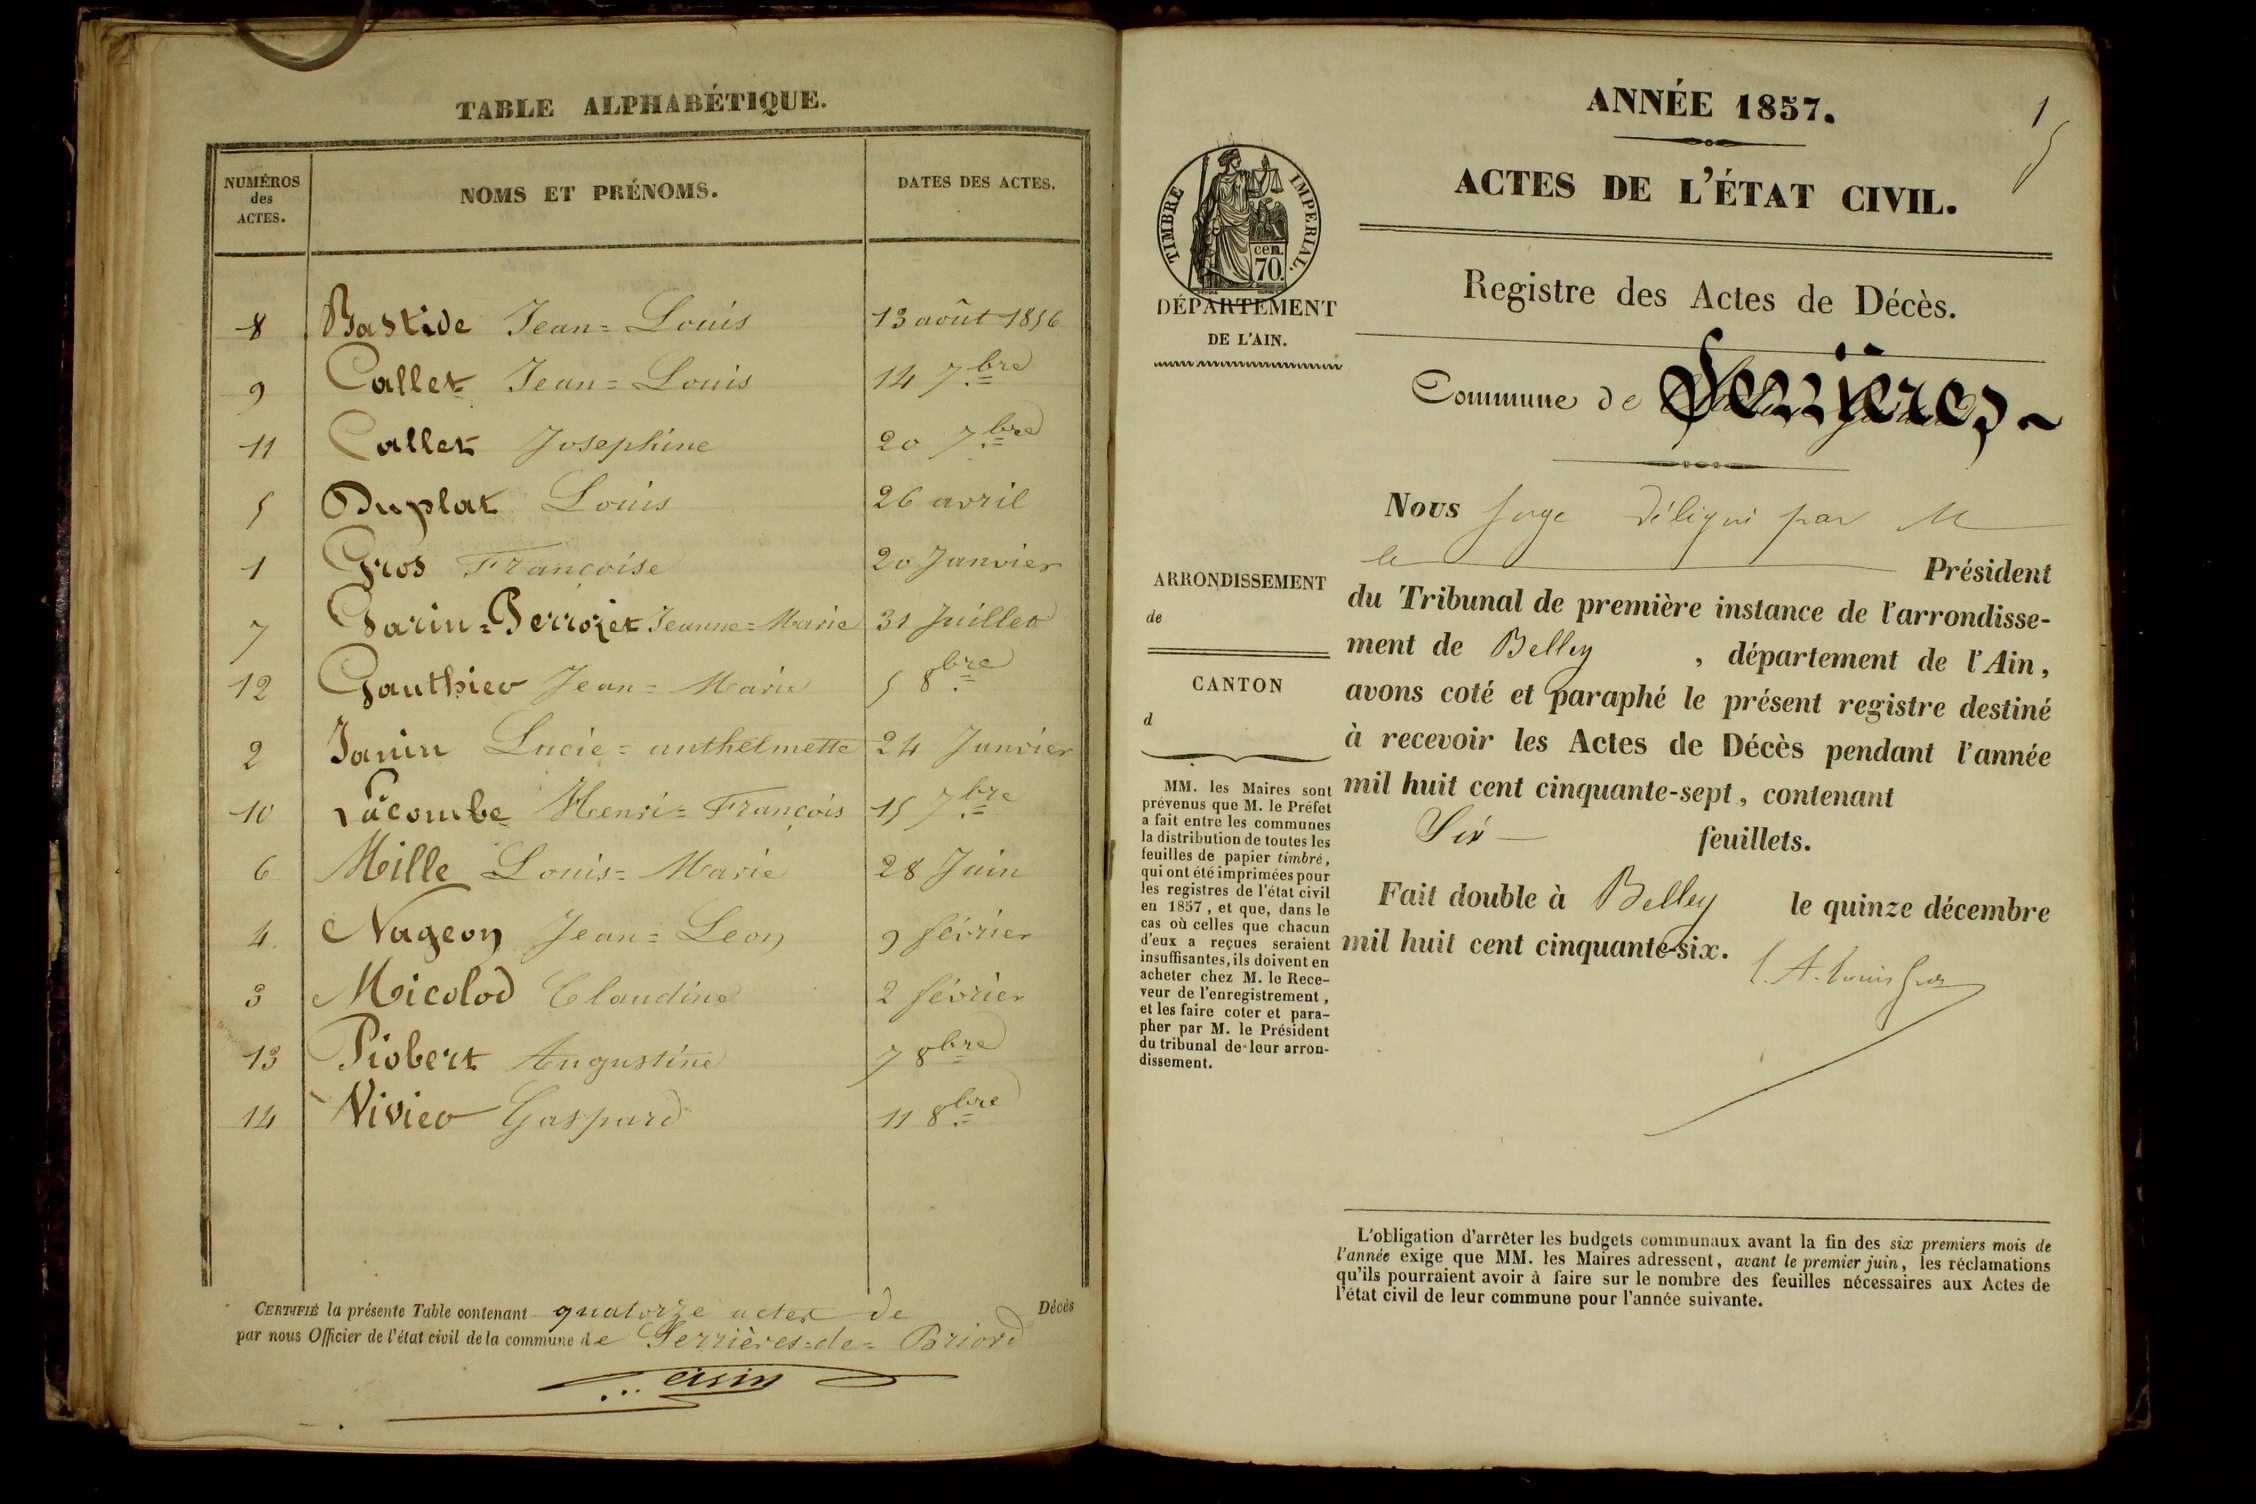 TABLE ALPHABÉTIQUE.
NUMÉROS des ACTES. NOMS ET PRÉNOMS. DATES DES ACTES.
8 Bastide Jean=Louis 13 août 1856
9 Callet Jean=Louis 14 7.bre
11 Callet Josephine 20 7.bre
5 Duplat Louis 26 avril
1 Gros Françoise 20 Janvier
7 Garin=Perrozet Jeanne=Marie 31 Juillet
12 Gauthier Jean=Marie 5 8.bre
2 Janin Lucie=anthelmette 24 Janvier
10 Lacombe Henri=François 15 7.bre
6 Mille Louis=Marie 28 Juin
4 Nageon Jean=Leon 9 février
3 Micolod Claudine 2 février
13 Piobert Augustine 7 8.bre
14 Vivier Gaspard 11 8.bre
CERTIFIÉ la présente Table contenant quatorze actes de Décès
par nous Officier de l'état civil de la commune de Serrières=de=Briord
1
ANNÉE 1857.
ACTES DE L'ÉTAT CIVIL.
Registre des Actes de Décès.
TIMBRE IMPERIAL.
cen. 70.
DÉPARTEMENT
DE L'AIN.
Commune de Serrières
Nous juge délégué par M
le Président
du Tribunal de première instance de l'arrondisse-
ment de Belley, département de l'Ain,
avons coté et paraphé le présent registre destiné
à recevoir les Actes de Décès pendant l'année
mil huit cent cinquante-sept, contenant
Six feuillets.
Fait double à Belley le quinze décembre
mil huit cent cinquante-six.
ARRONDISSEMENT
de
CANTON
d
MM. les Maires sont
prévenus que M. le Préfet
a fait entre les communes
la distribution de toutes les
feuilles de papier timbré,
qui ont été imprimées pour
les registres de l'état civil
en 1857, et que, dans le
cas où celles que chacun
d'eux a reçues seraient
insuffisantes, ils doivent en
acheter chez M. le Rece-
veur de l'enregistrement,
et les faire coter et para-
pher par M. le Président
du tribunal de leur arron-
dissement.
L'obligation d'arrêter les budgets communaux avant la fin des six premiers mois de
l'année exige que MM. les Maires adressent, avant le premier juin, les réclamations
qu'ils pourraient avoir à faire sur le nombre des feuilles nécessaires aux Actes de
l'état civil de leur commune pour l'année suivante.